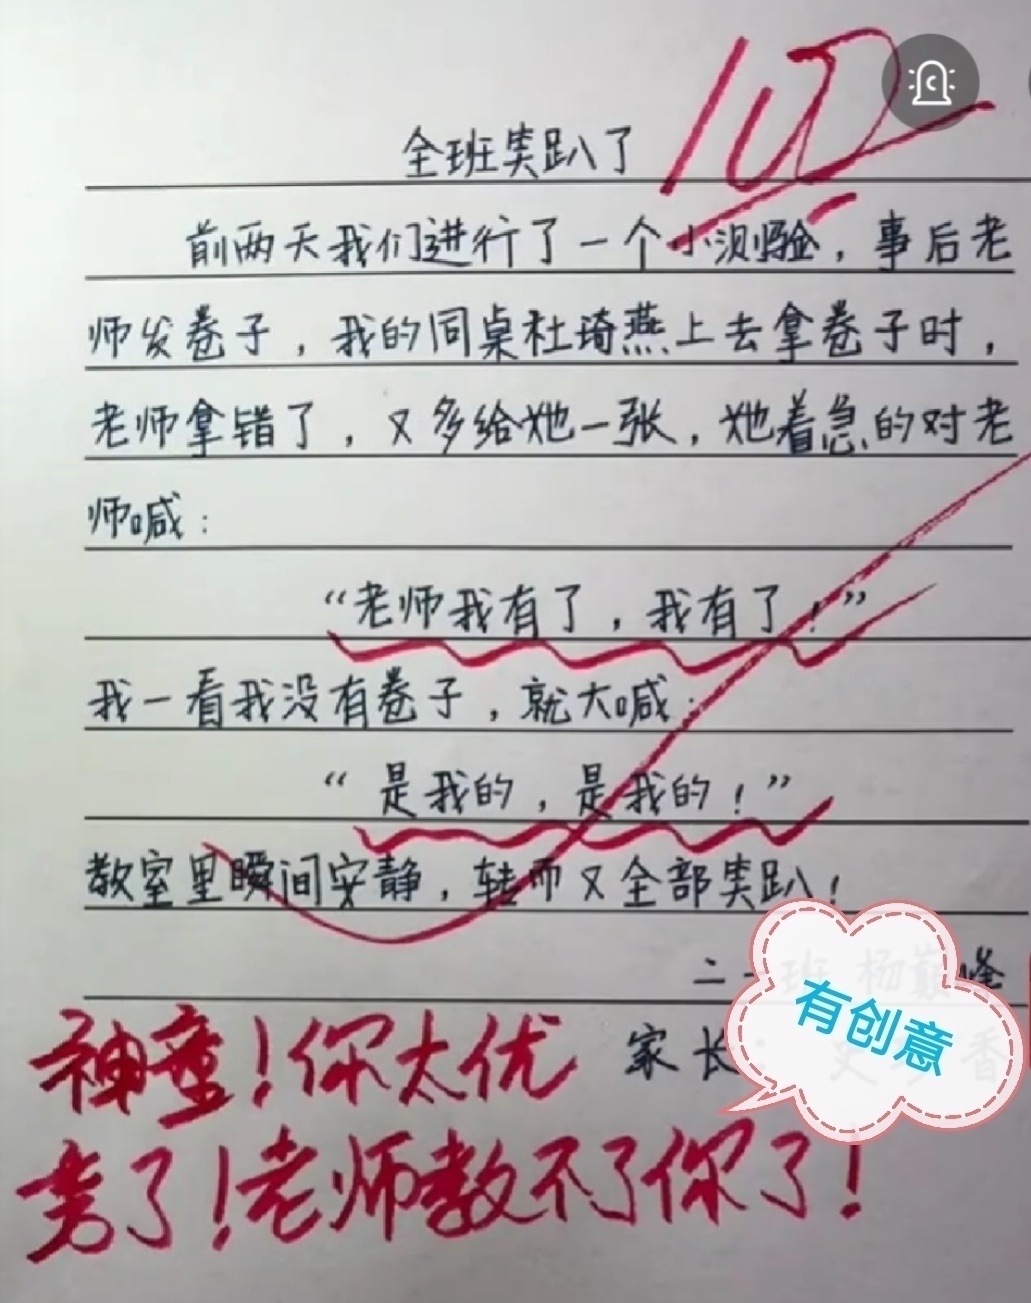 100
全班笑趴了
前两天我们进行了一个小测验，事后老
师发卷子，我的同桌杜琦燕上去拿卷子时，
老师拿错了，又多给她一张，她着急的对老
师喊：
“老师我有了，我有了！”
我一看我没有卷子，就大喊：
“是我的，是我的！”
教室里瞬间安静，转而又全部笑趴！
二一班 杨巅峰
家长：
有创意
神童！你太优
秀了！老师教不了你了！